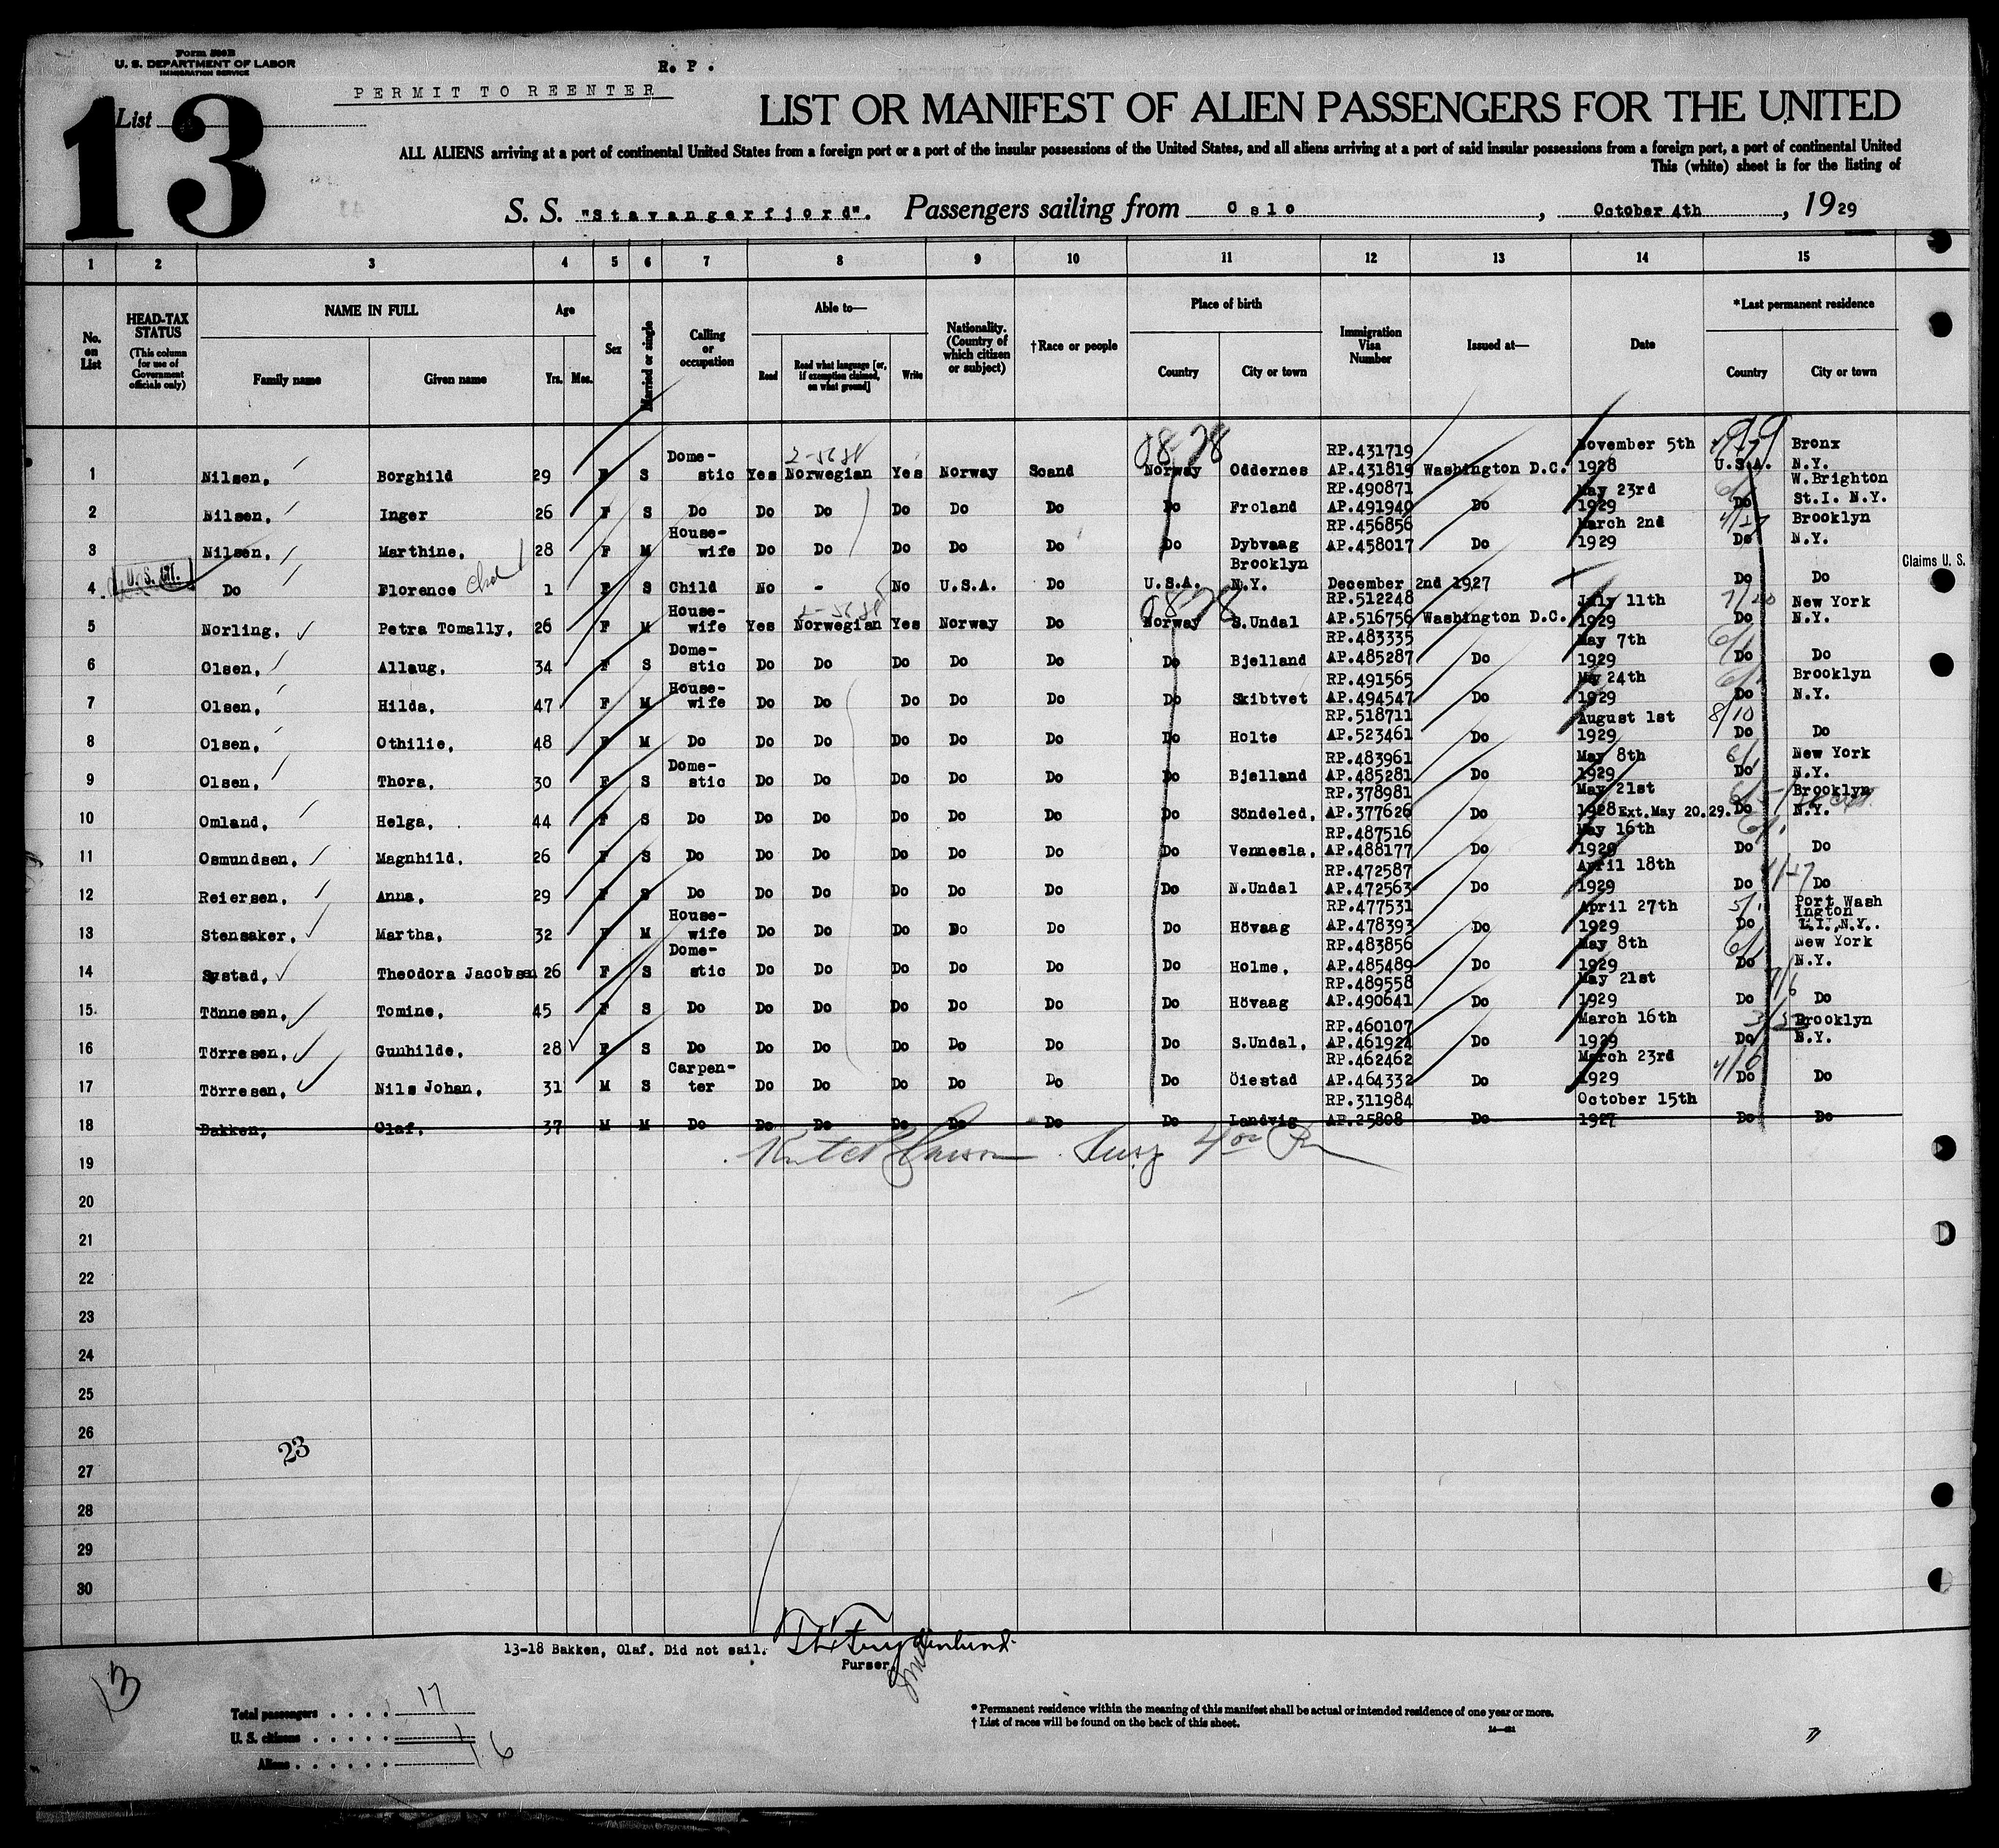 Form 500B
U. S. DEPARTMENT OF LABOR
IMMIGRATION SERVICE
R. P.
PERMIT TO REENTER
List
13
LIST OR MANIFEST OF ALIEN PASSENGERS FOR THE UNITED
ALL ALIENS arriving at a port of continental United States from a foreign port or a port of the insular possessions of the United States, and all aliens arriving at a port of said insular possessions from a foreign port, a port of continental United
This (white) sheet is for the listing of
S. S. "Stavangerfjord". Passengers sailing from Oslo, October 4th, 1929
1 2 3 4 5 6 7 8 9 10 11 12 13 14 15
No. on List
HEAD-TAX STATUS (This column for use of Government officials only)
NAME IN FULL Family name Given name
Age Yrs. Mos.
Sex
Married or single
Calling or occupation
Able to— Read Read what language [or, if exemption claimed, on what ground] Write
Nationality. (Country of which citizen or subject)
†Race or people
Place of birth Country City or town
Immigration Visa Number
Issued at—
Date
*Last permanent residence Country City or town
1 Nilsen, Borghild 29 F S Domestic Yes Norwegian Yes Norway Scand Norway Oddernes RP.431719 AP.431819 Washington D.C. November 5th 1928 U.S.A. Bronx N.Y.
2 Nilsen, Inger 26 F S Do Do Do Do Do Do Do Froland RP.490871 AP.491940 Do May 23rd 1929 Do W.Brighton St.I. N.Y.
3 Nilsen, Marthine, 28 F M House-wife Do Do Do Do Do Do Dybvaag RP.456856 AP.458017 Do March 2nd 1929 Do Brooklyn N.Y.
4 U.S. CIT. Do Florence 1 F S Child No - No U.S.A. Do U.S.A. Brooklyn N.Y. December 2nd 1927 Do Do Claims U. S.
5 Norling, Petra Tomally, 26 F M House-wife Yes Norwegian Yes Norway Do Norway S.Undal RP.512248 AP.516756 Washington D.C. July 11th 1929 Do New York N.Y.
6 Olsen, Allaug, 34 F S Dome-stic Do Do Do Do Do Do Bjelland RP.483335 AP.485287 Do May 7th 1929 Do Do
7 Olsen, Hilda, 47 F M House-wife Do Do Do Do Do Do Skibtvet RP.491565 AP.494547 Do May 24th 1929 Do Brooklyn N.Y.
8 Olsen, Othilie, 48 F M Do Do Do Do Do Do Do Holte RP.518711 AP.523461 Do August 1st 1929 8/10 Do Do
9 Olsen, Thora, 30 F S Dome-stic Do Do Do Do Do Do Bjelland RP.483961 AP.485281 Do May 8th 1929 Do New York N.Y.
10 Omland, Helga, 44 F S Do Do Do Do Do Do Do Söndeled, RP.378981 AP.377626 Do May 21st 1928 Ext.May 20.29. Do Brooklyn N.Y.
11 Osmundsen, Magnhild, 26 F S Do Do Do Do Do Do Do Vennesla, RP.487516 AP.488177 Do May 16th 1929 Do Do
12 Reiersen, Anna, 29 F S Do Do Do Do Do Do Do N.Undal RP.472587 AP.472563 Do April 18th 1929 Do Do
13 Stensaker, Martha, 32 F M House-wife Do Do Do Do Do Do Hövaag RP.477531 AP.478393 Do April 27th 1929 Do Port Wash ington L.I.,N.Y.
14 Systad, Theodora Jacobsen 26 F S Dome-stic Do Do Do Do Do Do Holme, RP.483856 AP.485489 Do May 8th 1929 Do New York N.Y.
15 Tönnesen, Tomine, 45 F S Do Do Do Do Do Do Do Hövaag RP.489558 AP.490641 Do May 21st 1929 Do Do
16 Törresen, Gunhilde, 28 F S Do Do Do Do Do Do Do S.Undal, RP.460107 AP.461924 Do March 16th 1929 Do Brooklyn N.Y.
17 Törresen, Nils Johan, 31 M S Carpen-ter Do Do Do Do Do Do Öiestad RP.462462 AP.464332 Do March 23rd 1929 Do Do
18 Bakken, Olaf, 37 M M Do Do Do Do Do Do Do Landvig RP.311984 AP.25808 Do October 15th 1927 Do Do
19
20
21
22
23
24
25
26
27
28
29
30
23
13-18 Bakken, Olaf. Did not sail.
Purser
13
Total passengers . . . . 17
U. S. citizens . . . . . 1
Aliens . . . . . . 16
* Permanent residence within the meaning of this manifest shall be actual or intended residence of one year or more.
† List of races will be found on the back of this sheet.